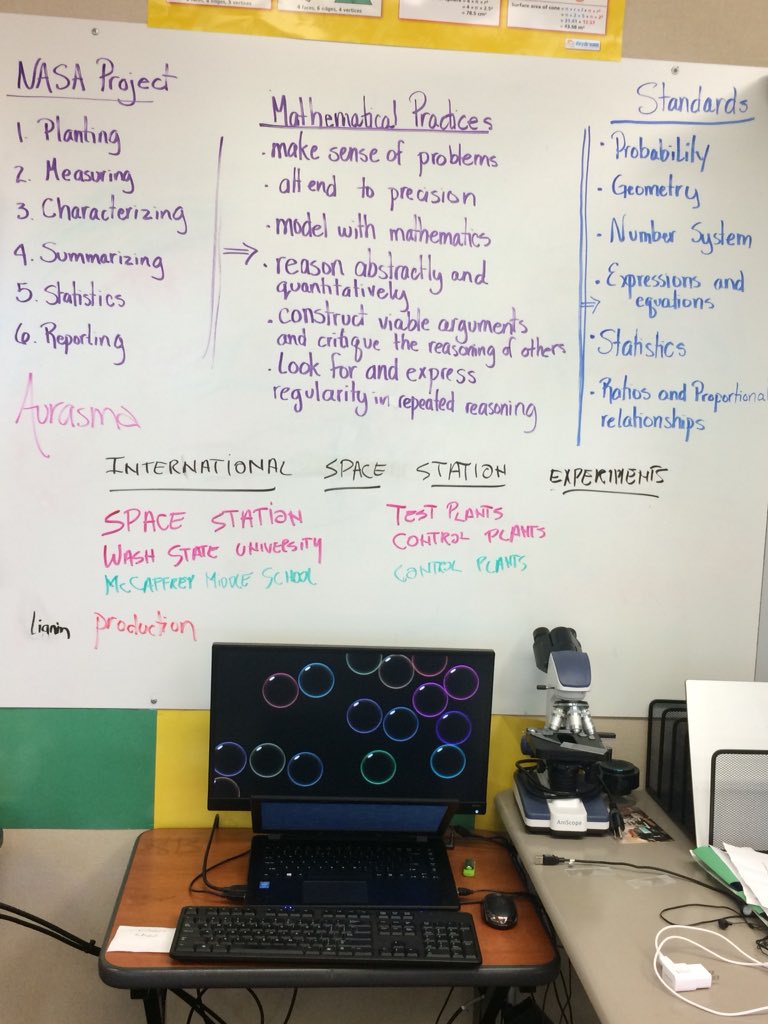 NASA Project
1. Planting
2. Measuring
3. Characterizing
4. Summarizing
5. Statistics
6. Reporting
Aurasma
Mathematical Practices
· make sense of problems
· attend to precision
· model with mathematics
· reason abstractly and
quantitatively
· construct viable arguments
and critique the reasoning of others
· Look for and express
regularity in repeated reasoning
Standards
· Probability
· Geometry
· Number System
· Expressions and
equations
· Statistics
· Ratios and Proportional
relationships
INTERNATIONAL SPACE STATION EXPERIMENTS
SPACE STATION TEST PLANTS
WASH STATE UNIVERSITY CONTROL PLANTS
McCAFFREY MIDDLE SCHOOL CONTROL PLANTS
Lignin production
AmScope